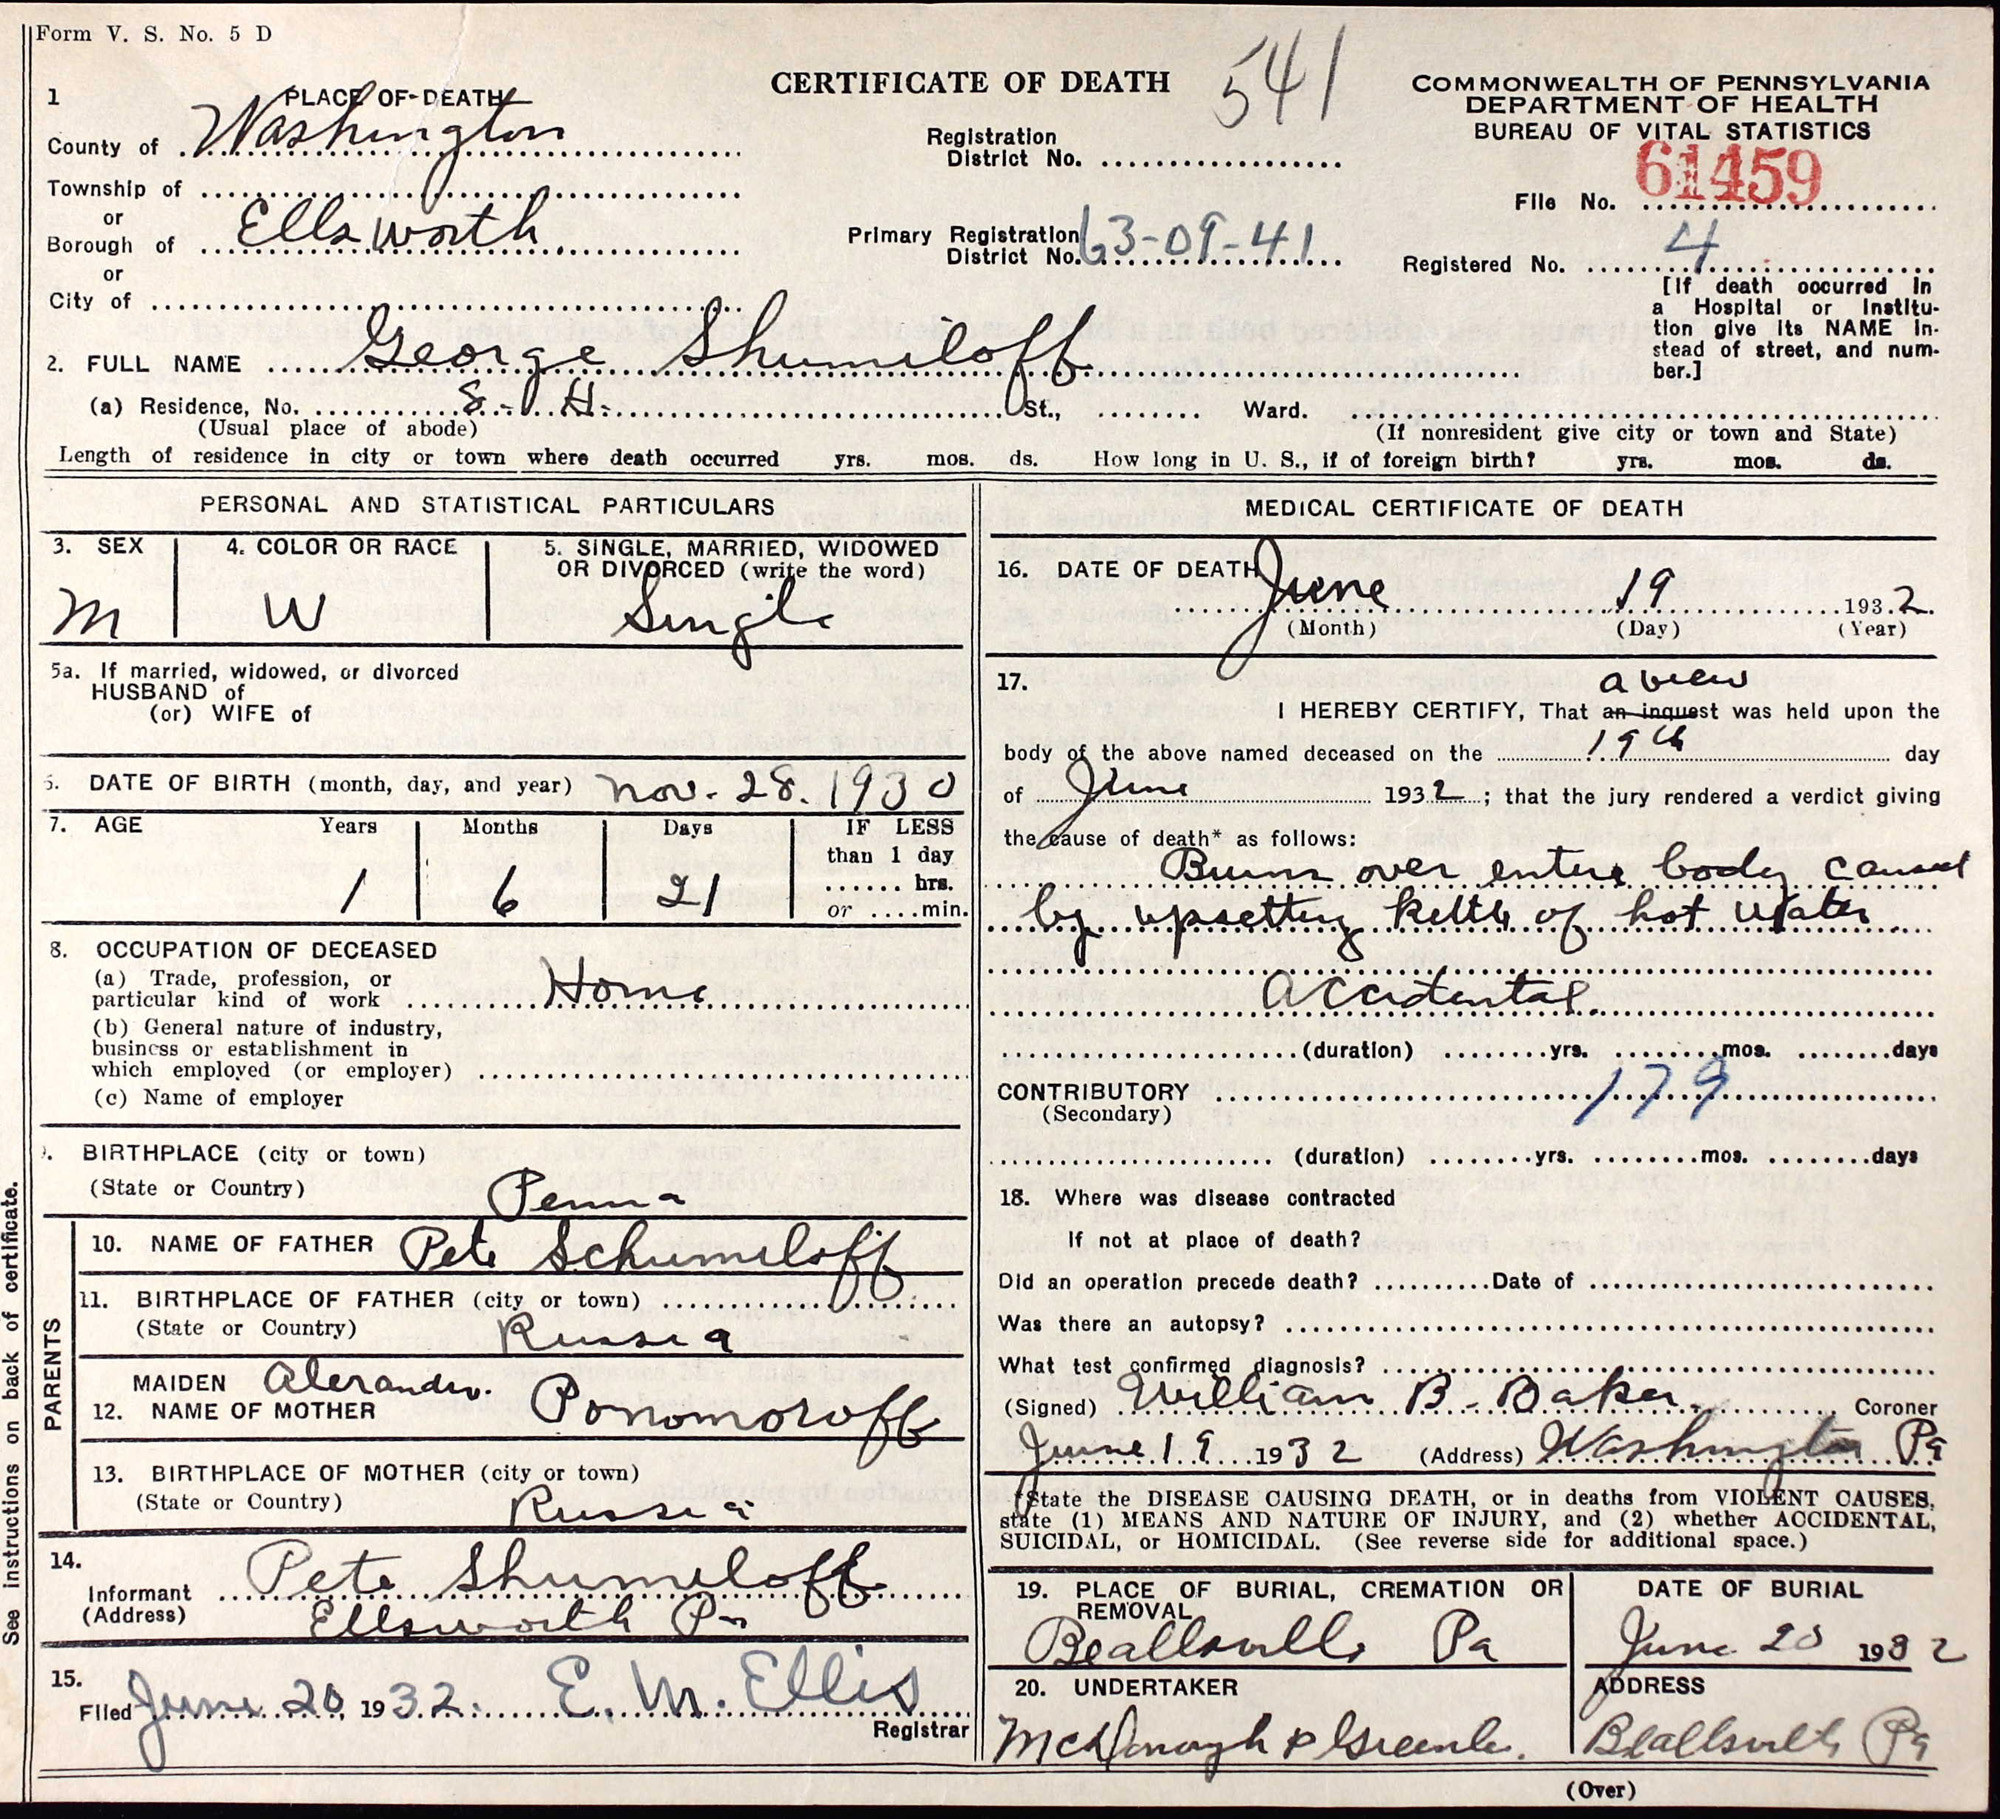 Form V. S. No. 5 D
CERTIFICATE OF DEATH
541
COMMONWEALTH OF PENNSYLVANIA
DEPARTMENT OF HEALTH
BUREAU OF VITAL STATISTICS
1 PLACE OF DEATH
County of Washington
Township of
or
Borough of Ellsworth.
or
City of
Registration
District No.
Primary Registration
District No. 63-09-41
File No. 61459
Registered No. 4
[If death occurred in
a Hospital or Institu-
tion give its NAME in-
stead of street, and num-
ber.]
2. FULL NAME George Shumiloff
(a) Residence, No. S. H. St., Ward.
(Usual place of abode) (If nonresident give city or town and State)
Length of residence in city or town where death occurred yrs. mos. ds. How long in U. S., if of foreign birth? yrs. mos. ds.
PERSONAL AND STATISTICAL PARTICULARS
3. SEX 4. COLOR OR RACE 5. SINGLE, MARRIED, WIDOWED
OR DIVORCED (write the word)
M W Single
5a. If married, widowed, or divorced
HUSBAND of
(or) WIFE of
6. DATE OF BIRTH (month, day, and year) Nov. 28. 1930
7. AGE Years Months Days IF LESS
than 1 day
hrs.
or ....min.
1 6 21
8. OCCUPATION OF DECEASED
(a) Trade, profession, or
particular kind of work Home
(b) General nature of industry,
business or establishment in
which employed (or employer)
(c) Name of employer
9. BIRTHPLACE (city or town)
(State or Country) Penna
PARENTS
10. NAME OF FATHER Pete Schumiloff
11. BIRTHPLACE OF FATHER (city or town)
(State or Country) Russia
MAIDEN
12. NAME OF MOTHER Ponomoroff
13. BIRTHPLACE OF MOTHER (city or town)
(State or Country) Russia
14.
Informant Pete Shumiloff
(Address) Ellsworth Pa
15.
Filed June 20, 1932. E. M. Ellis
Registrar
See instructions on back of certificate.
MEDICAL CERTIFICATE OF DEATH
16. DATE OF DEATH
June 19 1932.
(Month) (Day) (Year)
17. a view
I HEREBY CERTIFY, That an inquest was held upon the
body of the above named deceased on the 19th day
of June 1932; that the jury rendered a verdict giving
the cause of death* as follows:
Burns over entire body caused
by upsetting kettle of hot water
Accidental.
(duration) yrs. mos. days
CONTRIBUTORY 179
(Secondary)
(duration) yrs. mos. days
18. Where was disease contracted
If not at place of death?
Did an operation precede death? Date of
Was there an autopsy?
What test confirmed diagnosis?
(Signed) William B. Baker. Coroner
June 19 1932 (Address) Washington Pa
*State the DISEASE CAUSING DEATH, or in deaths from VIOLENT CAUSES,
state (1) MEANS AND NATURE OF INJURY, and (2) whether ACCIDENTAL,
SUICIDAL, or HOMICIDAL. (See reverse side for additional space.)
19. PLACE OF BURIAL, CREMATION OR
REMOVAL
Beallsville Pa
DATE OF BURIAL
June 20 1932
20. UNDERTAKER
McDonough &
ADDRESS
Beallsville Pa
(Over)